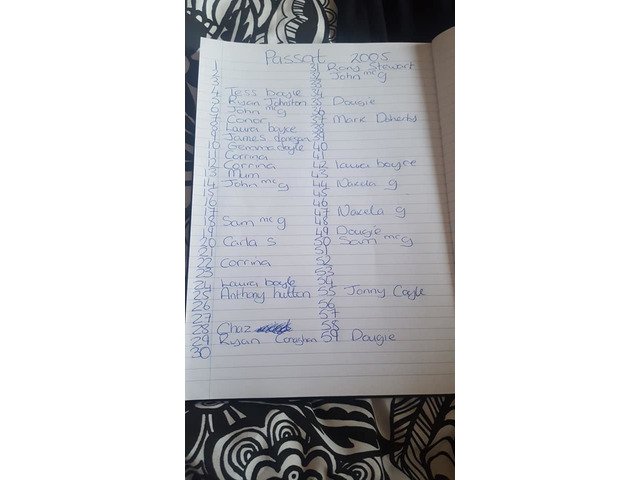 Passat 2005
1
2
3
4 Tess boyle
5 Ryan Johnston
6 John mc g
7 Conor
8 Laura boyce
9 James
10 Gemma doyle
11 Corrina
12 Corrina
13 Mum
14 John mc g
15
16
17
18 Sam mc g
19
20 Carla S
21
22 Corrina
23
24 Laura boyle
25 Anthony hutton
26
27
28 Chaz
29 Ryan Conaghan
30
31 Rony Stewart
32 John mc g
33
34
35 Dougie
36
37 Mark Doherty
38
39
40
41
42 laura boyce
43
44 g
45
46
47 g
48
49 Dougie
50 Sam mc g
51
52
53
54
55 Jonny Coyle
56
57
58
59 Dougie